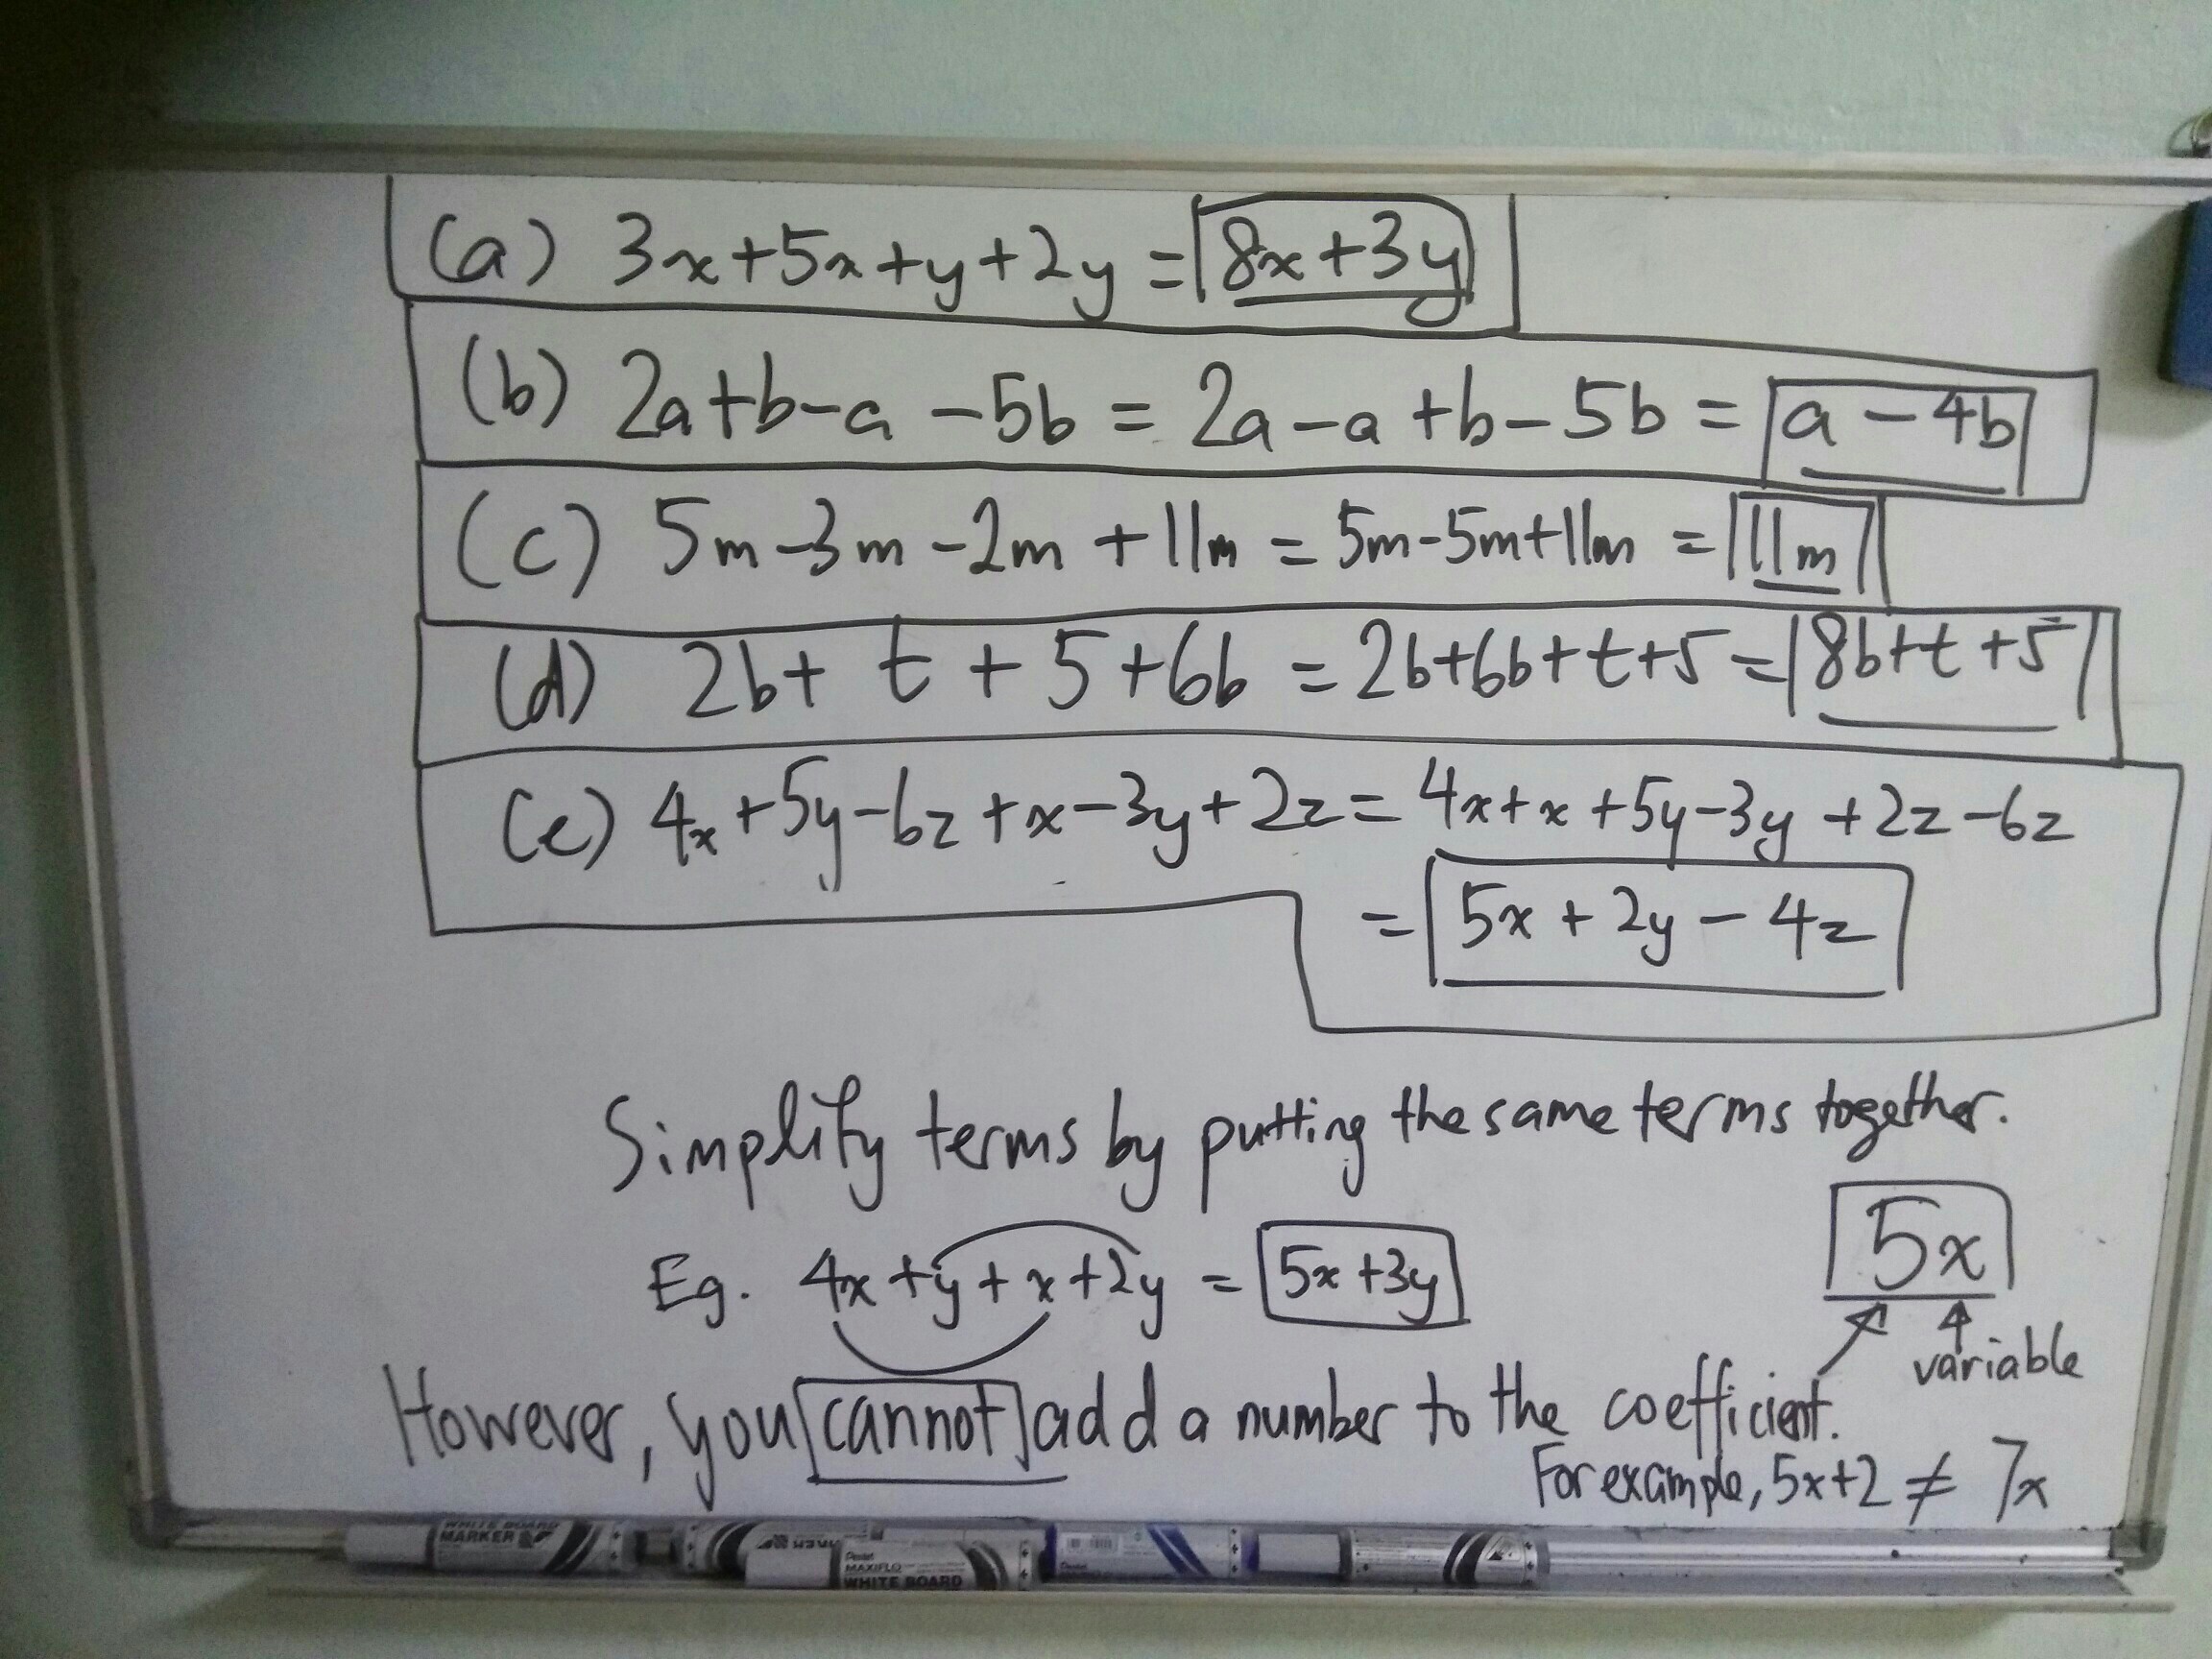 (a) 3x+5x+y+2y = 8x+3y
(b) 2a+b-a-5b = 2a-a+b-5b = a-4b
(c) 5m-3m-2m+11m = 5m-5m+11m = 11m
(d) 2b+t+5+6b = 2b+6b+t+5 = 8b+t+5
(e) 4x+5y-6z+x-3y+2z = 4x+x+5y-3y+2z-6z
= 5x+2y-4z
Simplify terms by putting the same terms together.
Eg. 4x+y+x+2y = 5x+3y
5x
variable
However, you cannot add a number to the coefficient.
For example, 5x+2 ≠ 7x
WHITE BOARD
MARKER
Pentel
MAXIFLO
WHITE BOARD
Pentel